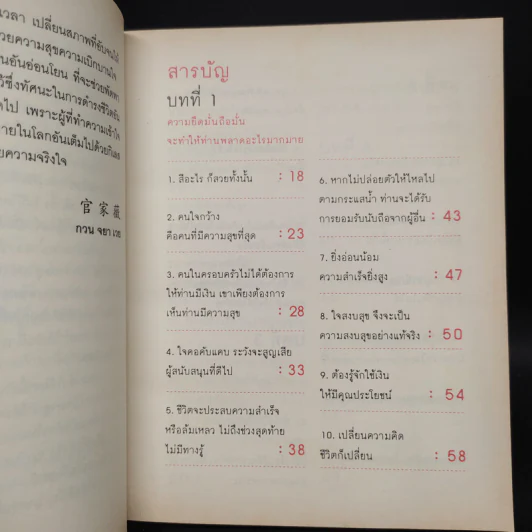 เวลา เปลี่ยนสภาพที่
ด้วยความสุขความเบิกบานใจ
อันอ่อนโยน ที่จะช่วย
ซึ่งทัศนะในการดำรงชีวิต
ไป เพราะผู้ที่ทำความเข้าใจ
ภายในโลกอันเต็มไปด้วย
ความจริงใจ
官家薇
กวน จยา เวย
สารบัญ
บทที่ 1
ความยึดมั่นถือมั่น
จะทำให้ท่านพลาดอะไรมากมาย
1. สีอะไร ก็สวยทั้งนั้น : 18
2. คนใจกว้าง
คือคนที่มีความสุขที่สุด : 23
3. คนในครอบครัวไม่ได้ต้องการ
ให้ท่านมีเงิน เขาเพียงต้องการ
เห็นท่านมีความสุข : 28
4. ใจคอคับแคบ ระวังจะสูญเสีย
ผู้สนับสนุนที่ดีไป : 33
5. ชีวิตจะประสบความสำเร็จ
หรือล้มเหลว ไม่ถึงช่วงสุดท้าย
ไม่มีทางรู้ : 38
6. หากไม่ปล่อยตัวให้ไหลไป
ตามกระแสน้ำ ท่านจะได้รับ
การยอมรับนับถือจากผู้อื่น : 43
7. ยิ่งอ่อนน้อม
ความสำเร็จยิ่งสูง : 47
8. ใจสงบสุข จึงจะเป็น
ความสงบสุขอย่างแท้จริง : 50
9. ต้องรู้จักใช้เงิน
ให้มีคุณประโยชน์ : 54
10. เปลี่ยนความคิด
ชีวิตก็เปลี่ยน : 58